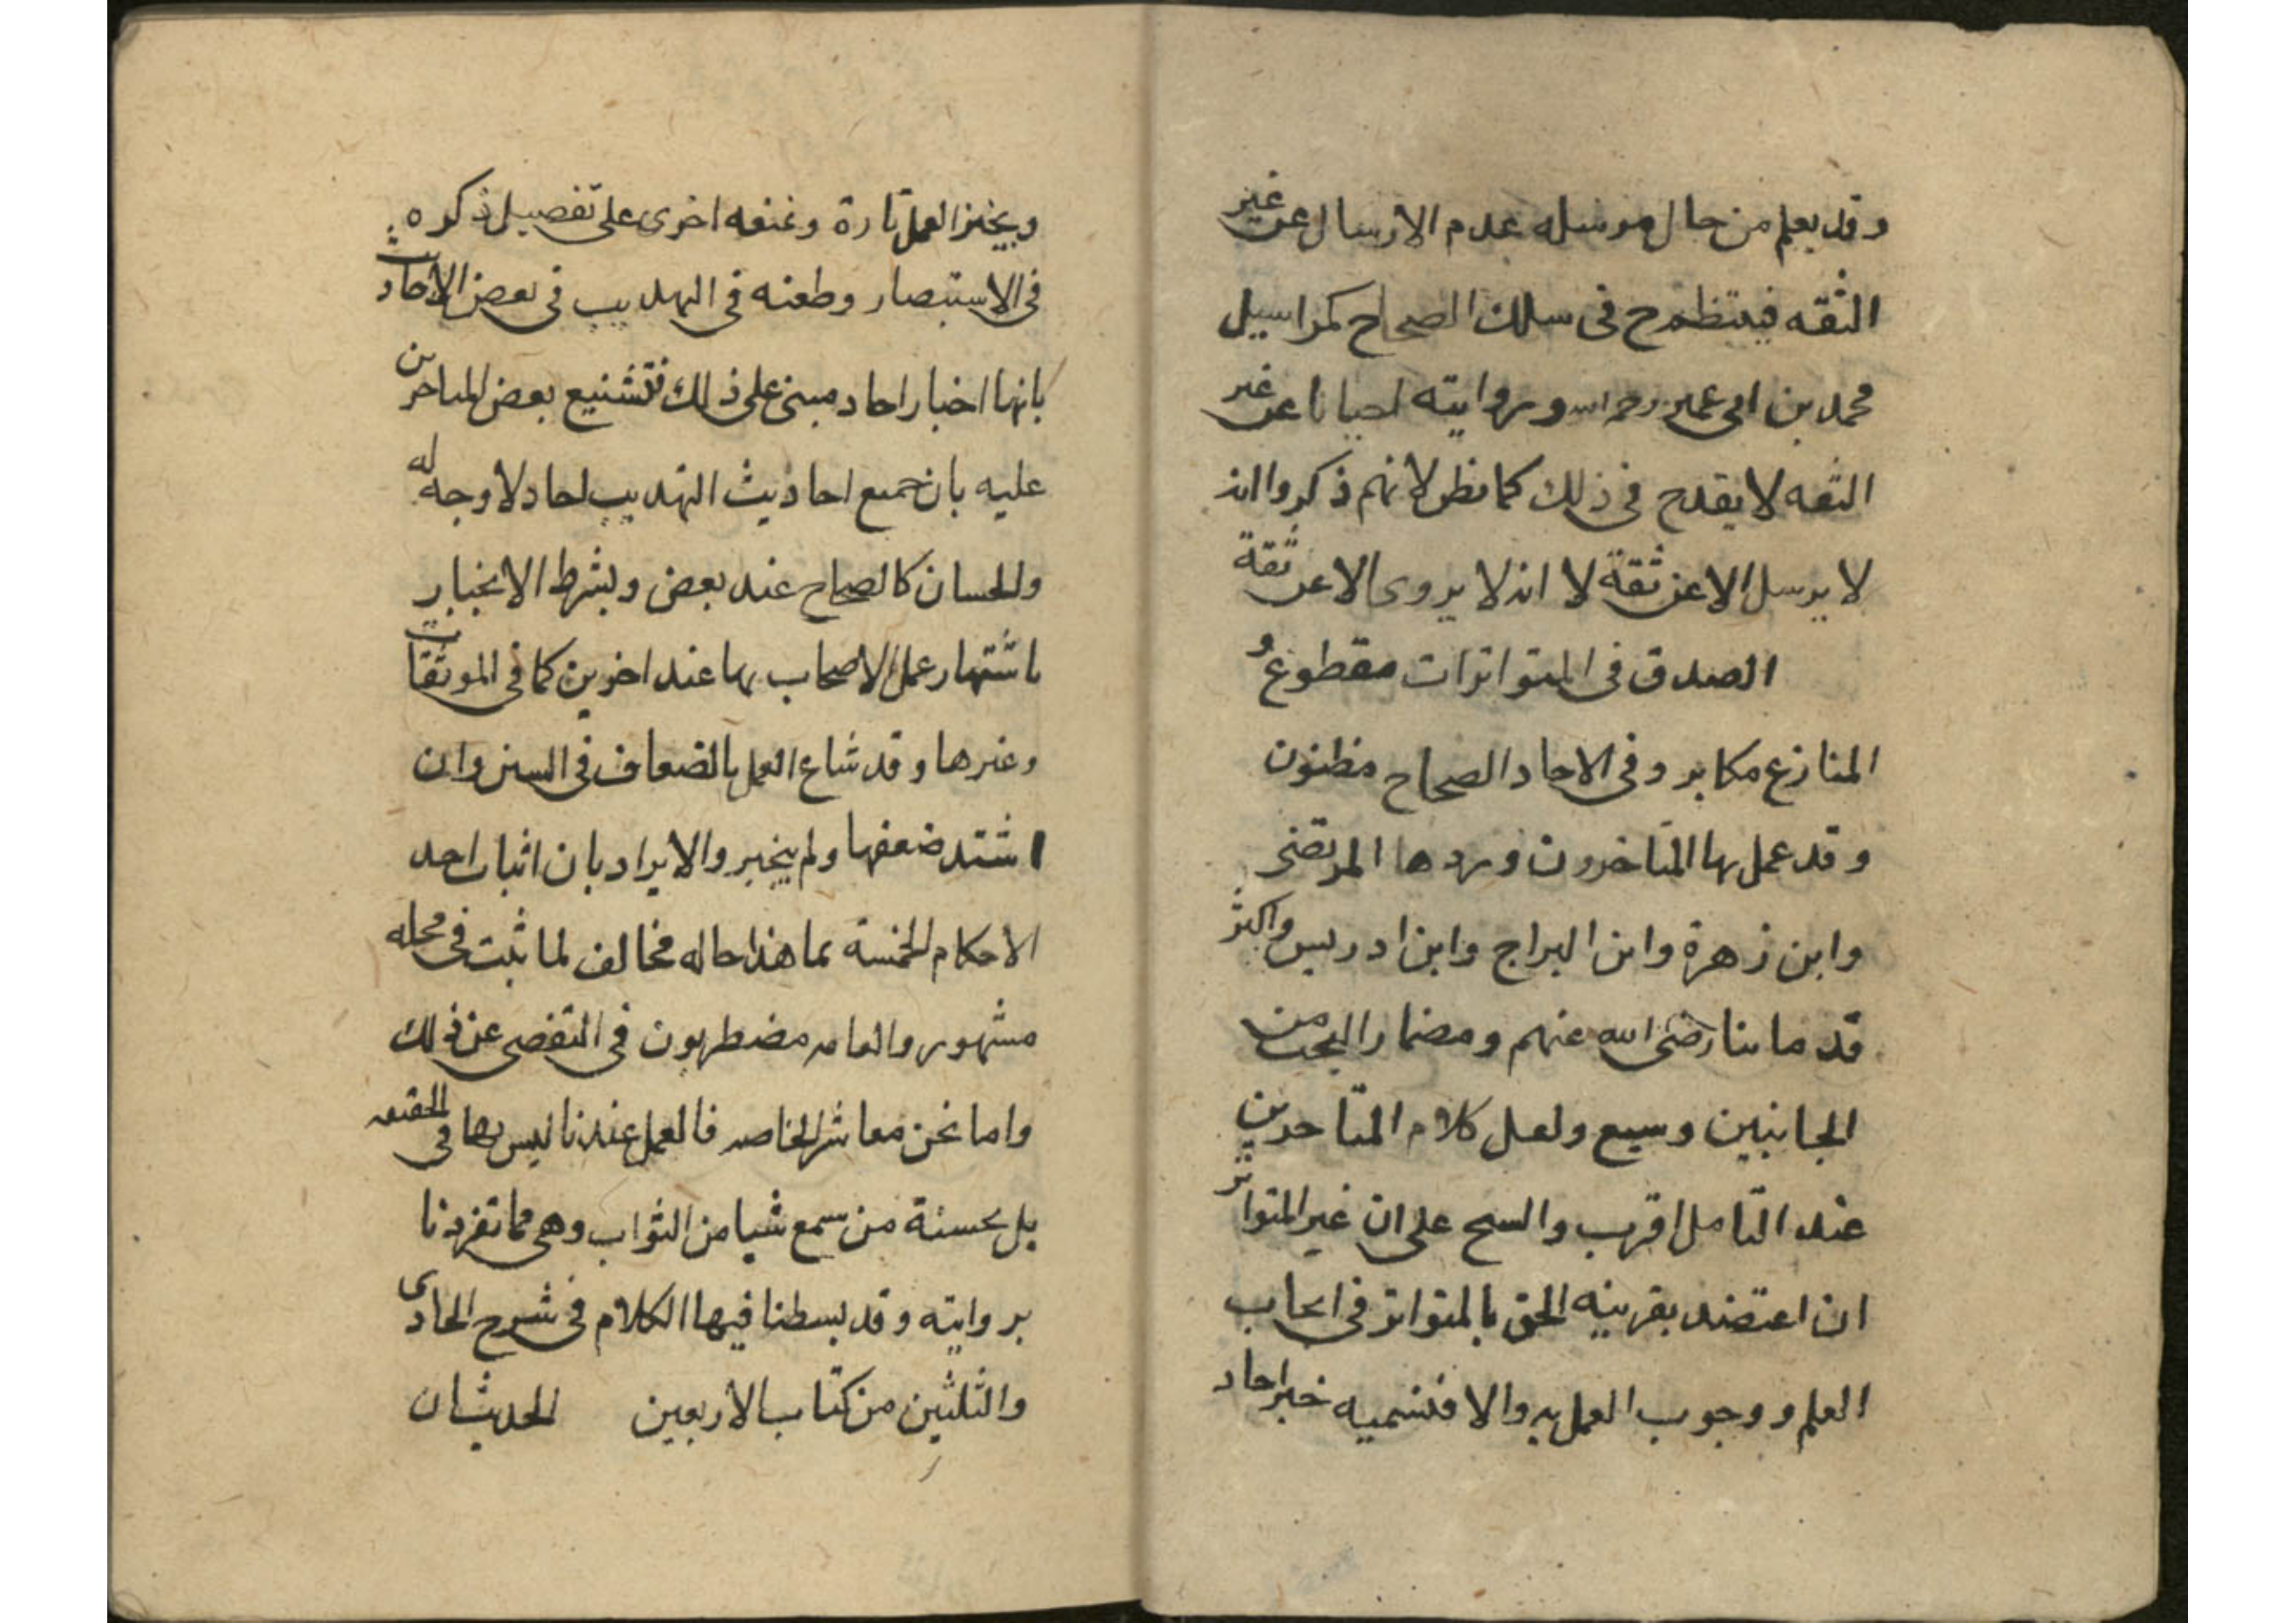 وقد يعلم من حال مرسله عدم الارسال عن غير
الثقه فينتظم ح فى سلك الصحاح كمراسيل
محمد بن ابى عمير رحمه الله وروايته احيانا عن غير
الثقه لا يقدح فى ذلك كما يظن لانهم ذكروا انه
لا يرسل الا عن ثقة لا انه لا يروى الا عن ثقة
الصدق فى المتواترات مقطوع و
المنازع مكابر وفى الاحاد الصحاح مظنون
وقد عمل بها المتاخرون وردها المرتضى
وابن زهرة وابن البراج وابن ادريس واكثر
قدمائنا رضى الله عنهم ومضمار البحث من
الجانبين وسيع ولعل كلام المتاخرين
عند التامل اقرب والشيخ على ان غير المتواتر
ان اعتضد بقرينه الحق بالمتواتر فى ايجاب
العلم ووجوب العمل به والا فنسميه خبر احاد
ويجيز العمل تارة ونمنعه اخرى على تفصيل ذكره
فى الاستبصار وطعنه فى التهذيب فى بعض الاحاديث
بانها اخبار احاد مبنى على ذلك فتشنيع بعض المتاخرين
عليه بان جميع احاديث التهذيب احاد لا وجه له
والحسان كالصحاح عند بعض وبشرط الانجبار
باشتهار عمل الاصحاب بها عند اخرين كما فى الموثقات
وغيرها وقد شاع العمل بالضعاف فى السنن وان
اشتد ضعفها ولم ينجبر والايراد بان اثبات احد
الاحكام الخمسة بما هذا حاله مخالف لما ثبت فى محله
مشهور والعامه مضطربون فى التفصى عن ذلك
واما نحن معاشر الخاصه فالعمل عندنا ليس بها فى الحقيقه
بل بحسنة من سمع شيا من الثواب وهى مما تفردنا
بروايته وقد بسطنا فيها الكلام فى شرح الحادى
والثلثين من كتاب الاربعين الحديثان